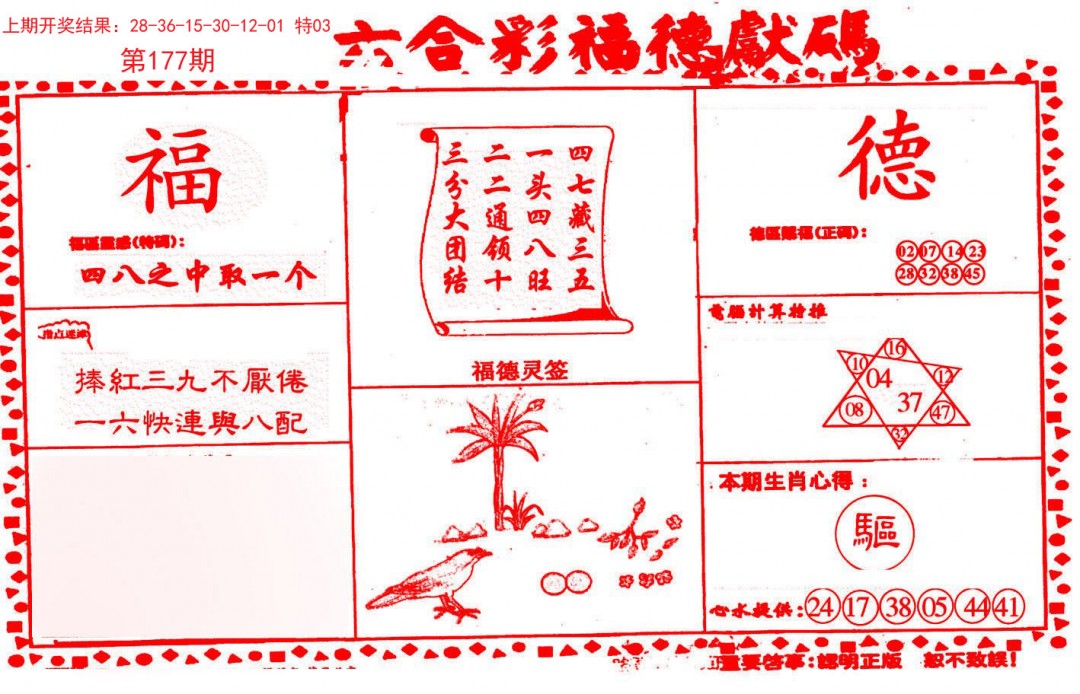 上期开奖结果：28-36-15-30-12-01 特03
第177期
六合彩福德獻碼
福
福區靈感(特碼)：
四八之中取一个
指点迷津
捧紅三九不厭倦
一六快連與八配
四七藏三五
一头四八旺
二二通领十
三分大团结
福德灵签
德
德區賜福(正碼)：
02 07 14 23
28 32 38 45
電腦計算特推
16
10
12
04
37
08
47
32
本期生肖心得：
驅
心水提供：24 17 38 05 44 41
重要啓事：認明正版 恕不致誤！